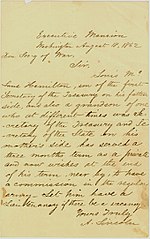 Executive Mansion
Washington August 18, 1862
Hon. Sec'y of War,
Sir:
Louis Mc
Lane Hamilton, son of the first
Secretary of the Treasury on his father's
side, and also a grandson of one
who at different times was Se-
cretary of the Treasury and Se-
cretary of the State on his
mother's side has served a
three months term as a private
and now wishes at the end
of his term, near by, to have
a commission in the Regular
Army. Let him have a
Lieutenancy if there be a vacancy
Yours truly
A. Lincoln